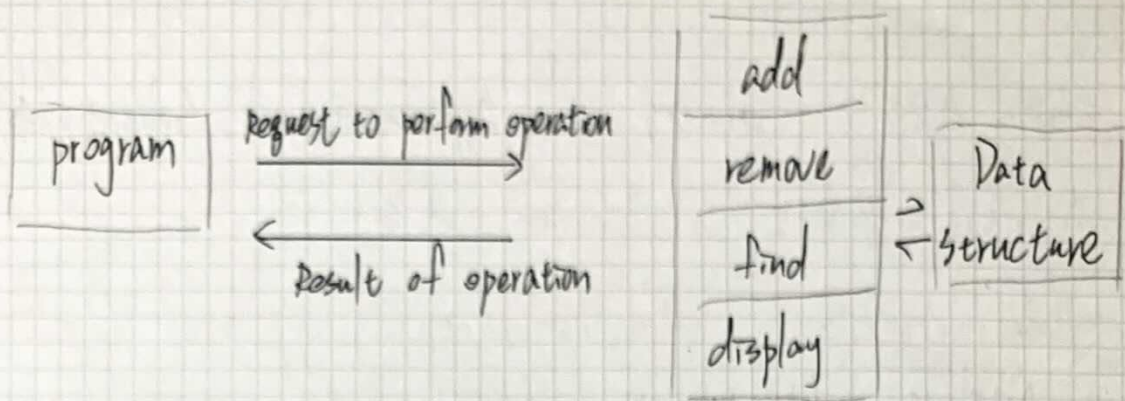 program
Request to perform operation
Result of operation
add
remove
find
display
Data
structure